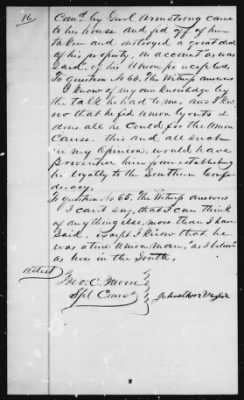 16
Comd. by Genl. Armstrong came
to his house and fed off of him
taken and destroyed a great deal
of his property, on account as was
said, of his Union principles.
To question No 64. The Witness answers
I know of my own knowledge by
the talk he had to me, and I know
too that he fed union scouts &
done all he could for the Union
Cause. This and, all such
in my opinion, would have
prevented him from establishing
his loyalty to the Southern Confe-
deracy.
To question No 65. The Witness answers
I can't say, that I can think
of anything else, more than I have
said. except I know that he
was a true Union man, as
as lives in the South.
Attest
Geo. C. Moore
Spl. Comr.
Johnathan